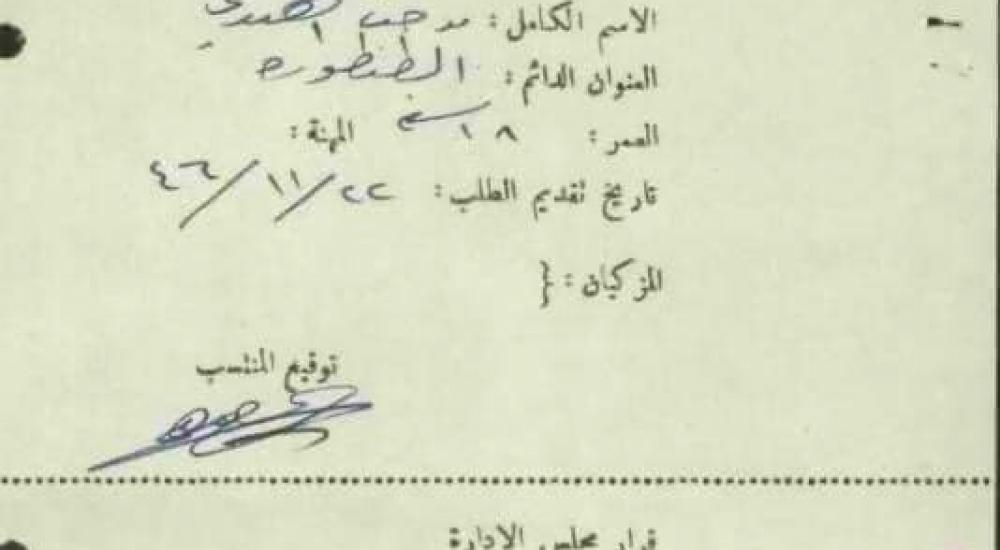 الاسم الكامل:
العنوان الدائم: الطنطوره
العمر: ١٨ سنه المهنة:
تاريخ تقديم الطلب: ٢٢/١١/٤٦
المزكيان: {
توقيع المنتسب
قرار مجلس الادارة